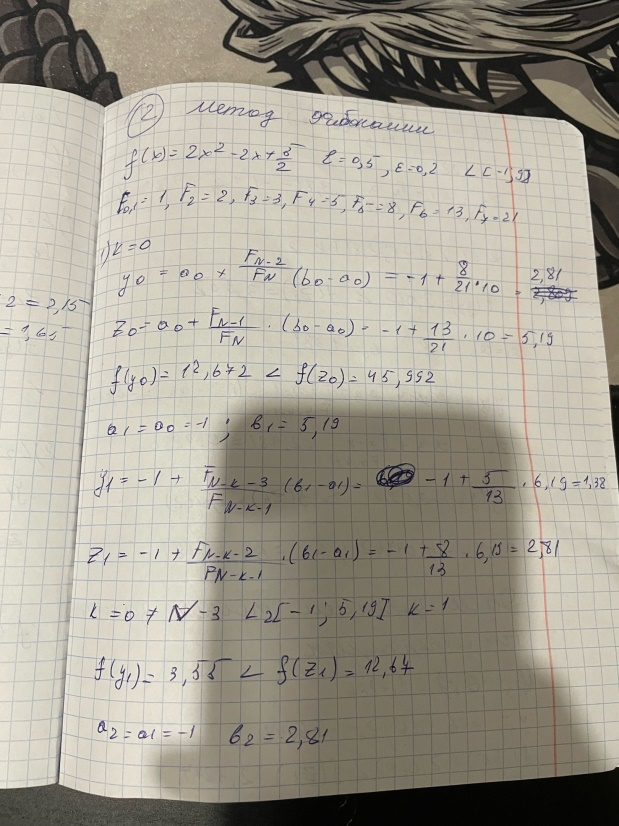 2 = 2,15
= 1,65
② метод фибоначчи
f(x) = 2x² - 2x + 5/2 ℓ = 0,5, ε = 0,2
F₀,₁ = 1, F₂ = 2, F₃ = 3, F₄ = 5, F₅ = 8, F₆ = 13, F₇ = 21
1) k = 0
y₀ = a₀ + F_{N-2}/F_N (b₀ - a₀) = -1 + 8/21 · 10 = 2,81
z₀ = a₀ + F_{N-1}/F_N · (b₀ - a₀) = -1 + 13/21 · 10 = 5,19
f(y₀) = 12,672 < f(z₀) = 45,992
a₁ = a₀ = -1 ; b₁ = 5,19
y₁ = -1 + F_{N-k-3}/F_{N-k-1} (b₁ - a₁) = -1 + 5/13 · 6,19 = 1,38
z₁ = -1 + F_{N-k-2}/F_{N-k-1} · (b₁ - a₁) = -1 + 8/13 · 6,19 = 2,81
k = 0 ≠ N - 3 L₂[-1 ; 5,19] k = 1
f(y₁) = 3,55 < f(z₁) = 12,67
a₂ = a₁ = -1 b₂ = 2,81